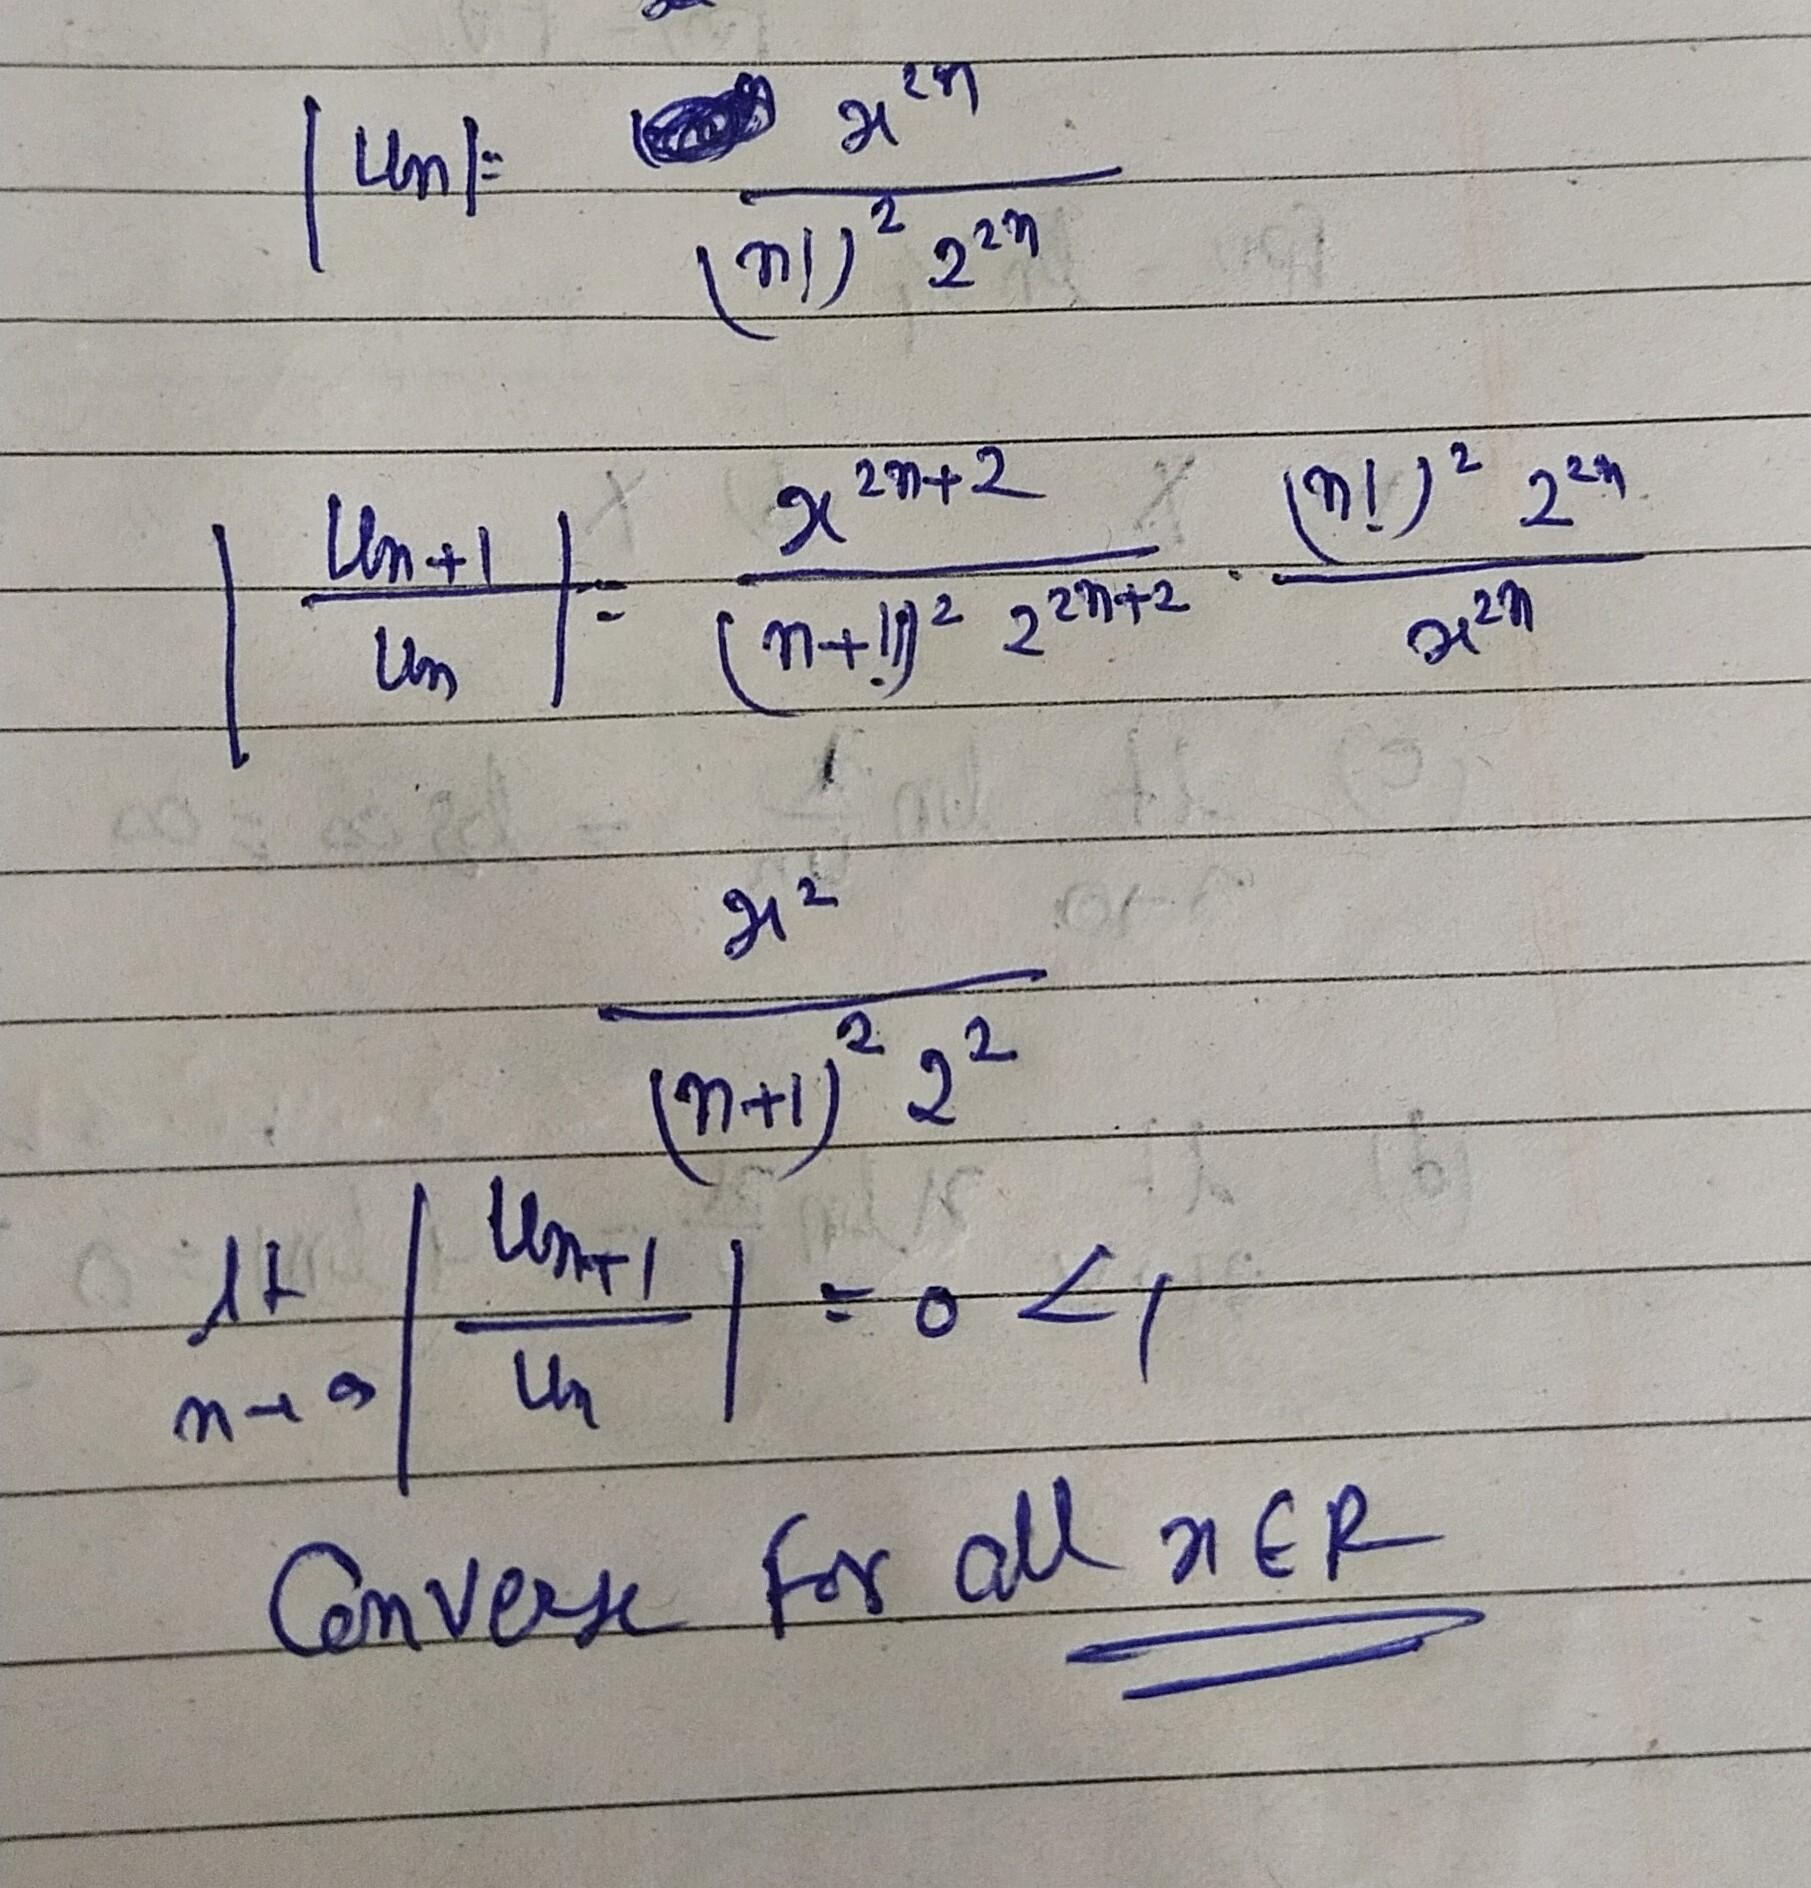 |Un| = x^{2n} / (n!)^2 2^{2n}
|Un+1 / Un| = x^{2n+2} / ((n+1)!)^2 2^{2n+2} · (n!)^2 2^{2n} / x^{2n}
x^2 / (n+1)^2 2^2
lt n→∞ |Un+1 / Un| = 0 < 1
Converse for all x ∈ R